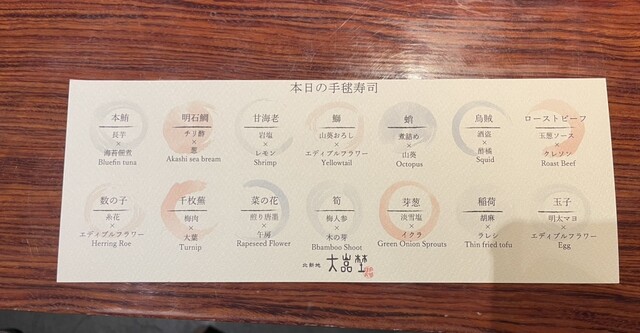 本日の手毬寿司
本鮪
長芋
×
海苔佃煮
Bluefin tuna
明石鯛
チリ酢
×
葱
Akashi sea bream
甘海老
岩塩
×
レモン
Shrimp
鰤
山葵おろし
×
エディブルフラワー
Yellowtail
蛸
煮詰め
×
山葵
Octopus
烏賊
酒盗
×
酢橘
Squid
ローストビーフ
玉葱ソース
×
クレソン
Roast Beef
数の子
糸花
×
エディブルフラワー
Herring Roe
千枚蕪
梅肉
×
大葉
Turnip
菜の花
煎り唐墨
×
午房
Rapeseed Flower
筍
梅人参
×
木の芽
Bhamboo Shoot
芽葱
淡雪塩
×
イクラ
Green Onion Sprouts
稲荷
胡麻
×
ラレシ
Thin fried tofu
玉子
明太マヨ
×
エディブルフラワー
Egg
北新地